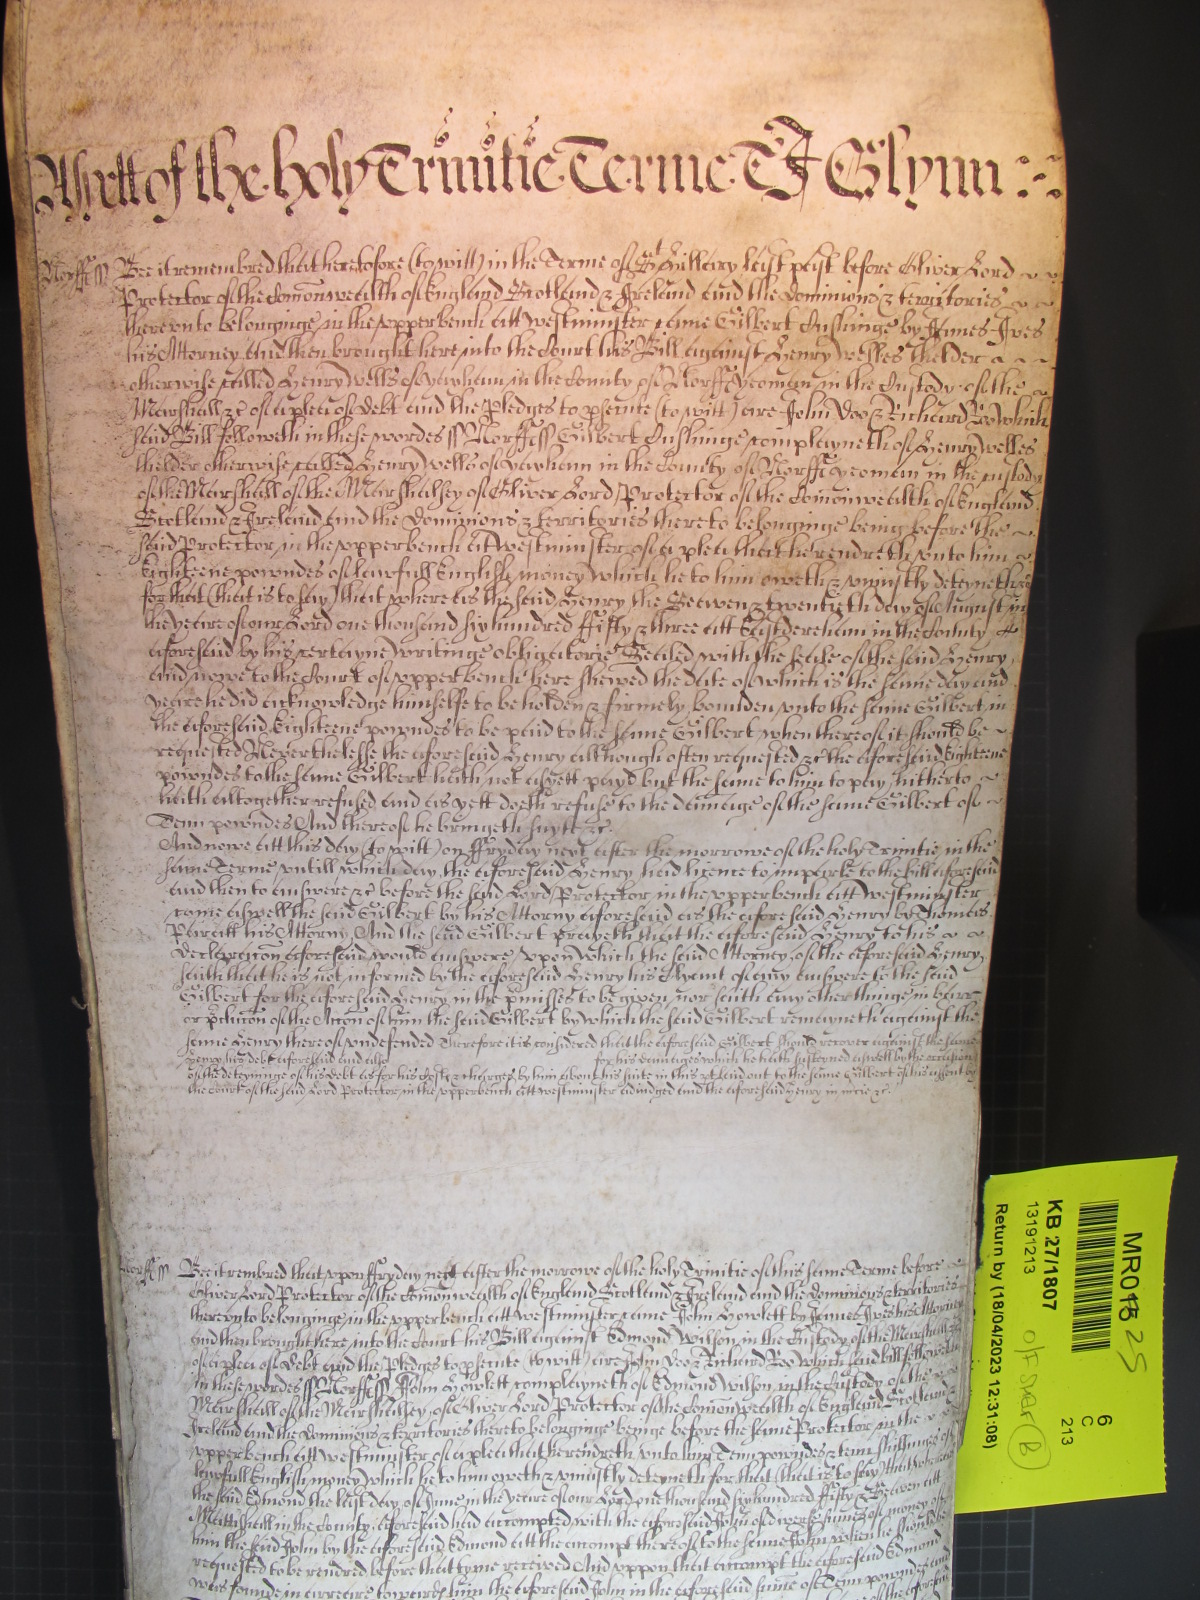 Yett of the holy Trinitie Terme T J Glynn
Norff ss Bee it remembred that heretofore (to witt) in the Terme of St Hillary last past before Oliver Lord
Protector of the Comonwealth of England Scotland & Ireland and the dominions & territories
thereunto belonginge in the upper bench att Westminster came Gilbert Cushinge by James Ives
his Attorney and then brought here into the Court his Bill against Henry Welles thelder
otherwise called Henry Wells of yaxham in the County of Norff yeoman in the Custody of the
Marshall &c of a plea of debt and the Pledges to psecute (to witt) are John Doo & Richard Roo which
said Bill followeth in these wordes ss Norff ss Gilbert Cushinge complayneth of Henry Welles
thelder otherwise called Henry Wells of yaxham in the County of Norff yeoman in the custody
of the Marshall of the Marshalsey of Oliver Lord Protector of the Comonwealth of England
Scotland & Ireland and the dominions & territories thereto belonginge being before the
said Protector in the upper bench att Westminster of a plea that he rendreth unto him
Eighteene powndes of lawfull English money which he to him oweth & uniustly deteyneth
for that (that is to say) that whereas the said Henry the Seaven & twentieth day of August in
the yeare of our Lord one thousand six hundred fifty & three att East dereham in the County
aforesaid by his certayne writinge obligatorie Sealed with the seale of the said Henry
and nowe to the Court of upper bench here shewed the date of which is the same day and
yeare he did acknowledge himselfe to be holden & firmely bounden unto the same Gilbert in
the aforesaid Eighteene powndes to be paid to the same Gilbert when thereof it should be
requested Neverthelesse the aforesaid Henry although often requested &c the aforesaid Eighteene
powndes to the same Gilbert hath not as yett payd but the same to him to pay hitherto
hath altogether refused and as yett doeth refuse to the damage of the same Gilbert of
Tenn powndes And thereof he bringeth suyte &c.
And nowe att this day (to witt) on ffryday next after the morrowe of the holy Trinitie in the
same Terme untill which day the aforesaid Henry had licence to imparle to the bill aforesaid
and then to answere &c before the said Lord Protector in the upper bench att Westminster
came aswell the said Gilbert by his Attorny aforesaid as the aforesaid Henry by Thomas
his Attorny And the said Gilbert prayeth that the aforesaid Henry to his
declaracon aforesaid would answere upon which the said Attorney of the aforesaid Henry
saith that he is not informed by the aforesaid Henry his Clyent of any answere to the said
Gilbert for the aforesaid Henry in the pmisses to be given nor saith any other thinge in barr
or pclucon of the Accon of him the said Gilbert by which the said Gilbert remayneth against the
same Henry thereof undefended Therefore it is considered that the aforesaid Gilbert should recover against the same
Henry his debt aforesaid and also for his damages which he hath susteyned aswell by the occasion
of the deteyninge of his debt as for his Costs & charges by him about his suite in this behalf out to the same Gilbert of his assent by
the Court of the said Lord Protector in the upper bench att Westminster adiudged and the aforesaid Henry in mcie &c.
Norff ss Bee it rembred that upon ffryday next after the morrowe of the holy Trinitie of this same Terme before
Oliver Lord Protector of the Comonwealth of England Scotland & Ireland and the dominions & territories
thereunto belonginge in the upper bench att Westminster came John Howlett by James Ives his Attorney
and then brought here into the Court his Bill against Edmond Wilson in the Custody of the Marshall &c
of a plea of debt and the Pledges to psecute (to witt) are John Doo & Richard Roo which said bill followeth
in these wordes ss Norff ss John Howlett complayneth of Edmond Wilson in the Custody of the
Marshall of the Marshalsey of Oliver Lord Protector of the Comonwealth of England Scotland &
Ireland and the dominions & territories thereto belonginge beinge before the same Protector in the
upper bench att Westminster of a plea that he rendreth unto him Tenn powndes & tenn shillings of
lawfull English money which he to him oweth & uniustly deteyneth for that (that is to say) that whereas
the said Edmond the last day of June in the yeare of our Lord one thousand six hundred fifty & Seaven att
Mattishall in the County aforesaid had accompted with the aforesaid John of diverse sumes of money of
him the said John by the aforesaid Edmond att the accompt thereof to the same John when he should be
requested to be rendred before that tyme received And uppon that accompt the aforesaid Edmond
was founde in arreare towards him the aforesaid John in the aforesaid sume of Tenn powndes and
MR016 25
6
C
213
KB 27/1807
13191213
Return by (18/04/2023 12:31:08)
B